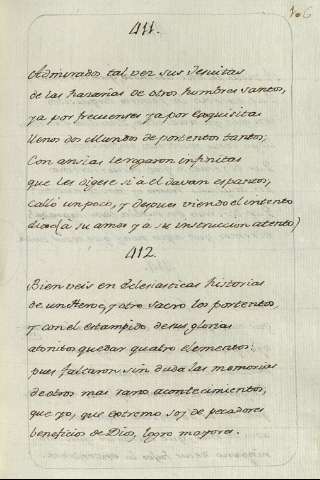 106
411.
Admirados tal vez sus Jesuitas
de las hazañas de otros hombres santos,
ya por frecuentes ya por exquisitas
llenos dos Mundos de portentos tantos;
Con ansias le rogaron infinitas
que les digese si a él davan espantos,
calló un poco, y despues viendo el intento
(a su amor y a su instruccion atento)
412.
Bien veis en Eclesiasticas historias
de un Heroe, y otro sacro los portentos,
y con el estampido de sus glorias
atonitos quedar quatro elementos:
pues faltaron sin duda las memorias
de otros mas raros acontecimientos,
que yo, que extremo soy de pecadores
beneficios de Dios, logro mayores.